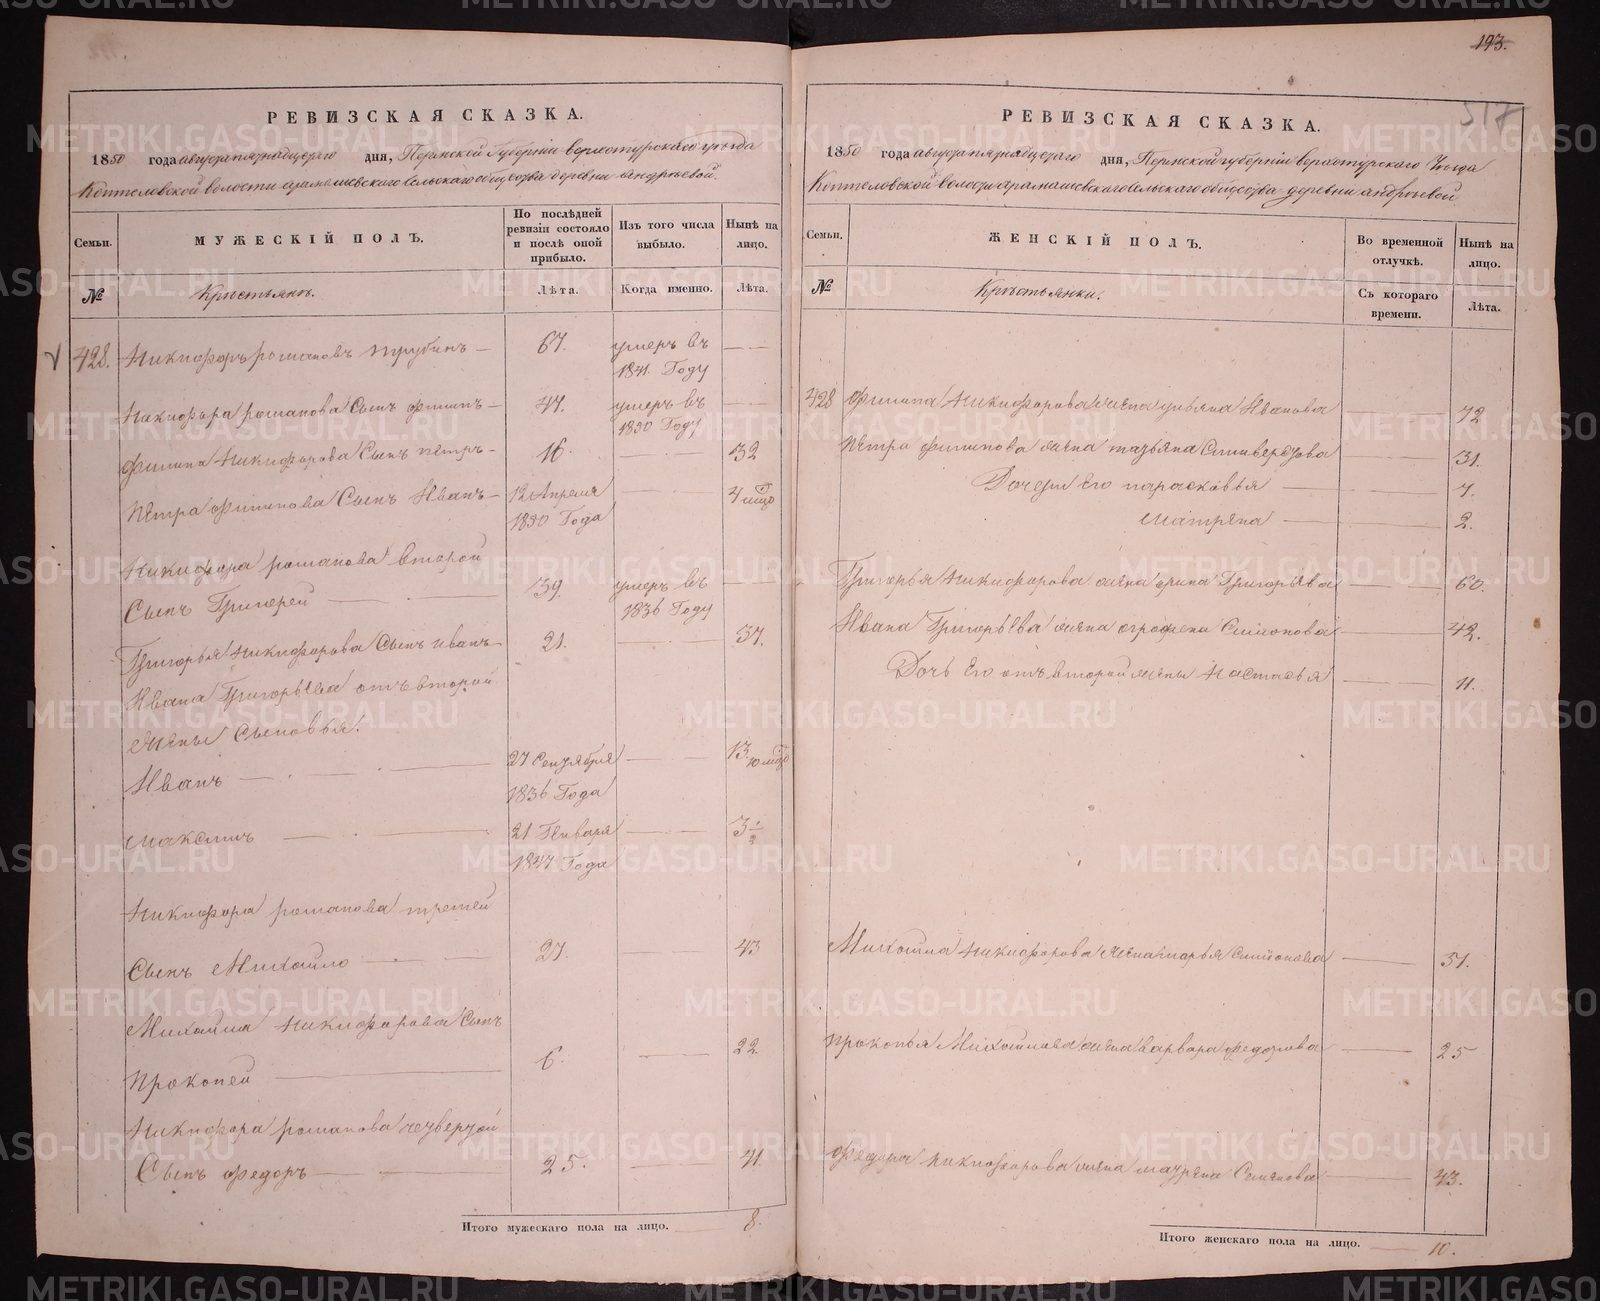 193.
517
РЕВИЗСКАЯ СКАЗКА.
1850 года августа пятнадцатаго дня, Пермской Губерніи верхотурскаго уѣзда
Коптеловской волости арамашевскаго сельскаго общества деревни андрѣевой
Семьи.
МУЖЕСКІЙ ПОЛЪ.
По послѣдней ревизіи состояло и послѣ оной прибыло.
Изъ того числа выбыло.
Нынѣ на лицо.
№
Крестьянъ.
Лѣта.
Когда именно.
Лѣта.
428. Никифоръ романовъ трубинъ — 67. умеръ въ — —
1841 Году
Никифора романова Сынъ филипъ — 47. умеръ въ — —
1850 Году
филипа Никифорова Сынъ пѣтръ — 16. — — 32
Пѣтра филипова Сынъ Иванъ — 12 Апреля — — 4 мѣс
1850 Года
Никифора романова второй
Сынъ Григорей — — 39. умеръ въ — —
1836 Году
Григорья Никифорова Сынъ иванъ — 21. — — 37.
Ивана Григорьева отъ второй
жѣны Сыновья:
Иванъ — — 27 Сентября — — 13. 10 мѣс
1836 Года
максимъ — — 21 Генваря — — 3 1/2
1847 Года
Никифора романова третей
Сынъ Михайло — — 27. — — 43
Михаила Никифорова Сынъ
Прокопей — 6. — — 22
Никифора романова четвертой
Сынъ федоръ — — 25. — — 41.
Итого мужескаго пола на лицо. — 8.
РЕВИЗСКАЯ СКАЗКА.
1850 года августа пятнадцатаго дня, Пермской губерніи верхотурскаго Уѣзда
Коптеловской волости арамашевскаго сельскаго общества деревни андрѣевой
Семьи.
ЖЕНСКІЙ ПОЛЪ.
Во временной отлучкѣ.
Нынѣ на лицо.
№
Крѣстьянки.
Съ котораго времени.
Лѣта.
428 филипа Никифорова жѣна ульяна Иванова — 72
Пѣтра филипова жѣна татьяна Селивѣрстова — 31.
Дочери Его парасковья — — 7.
матрѣна — — 2.
Григорья Никифорова жѣна ирина Григорьева — 60.
Ивана Григорьева жѣна огрофена Симонова — 42.
Дочь Его отъ второй жѣны Настасья — 11.
Михаила Никифорова жѣна марья Симонова — 51.
Прокопья Михайлова жѣна варвара федорова — 25
Федора Никифорова жѣна матрѣна Семѣнова — 43.
Итого женскаго пола на лицо. — 10.
METRIKI.GASO-URAL.RU